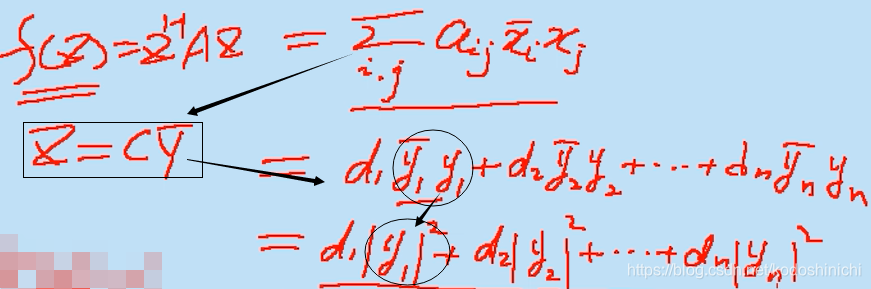 f(X) = X^H A X = Σ_{i,j} a_{ij} x̄_i x_j
X = C Y
= d_1 ȳ_1 y_1 + d_2 ȳ_2 y_2 + ··· + d_n ȳ_n y_n
= d_1 |y_1|^2 + d_2 |y_2|^2 + ··· + d_n |y_n|^2
https://blog.csdn.net/kodoshinichi